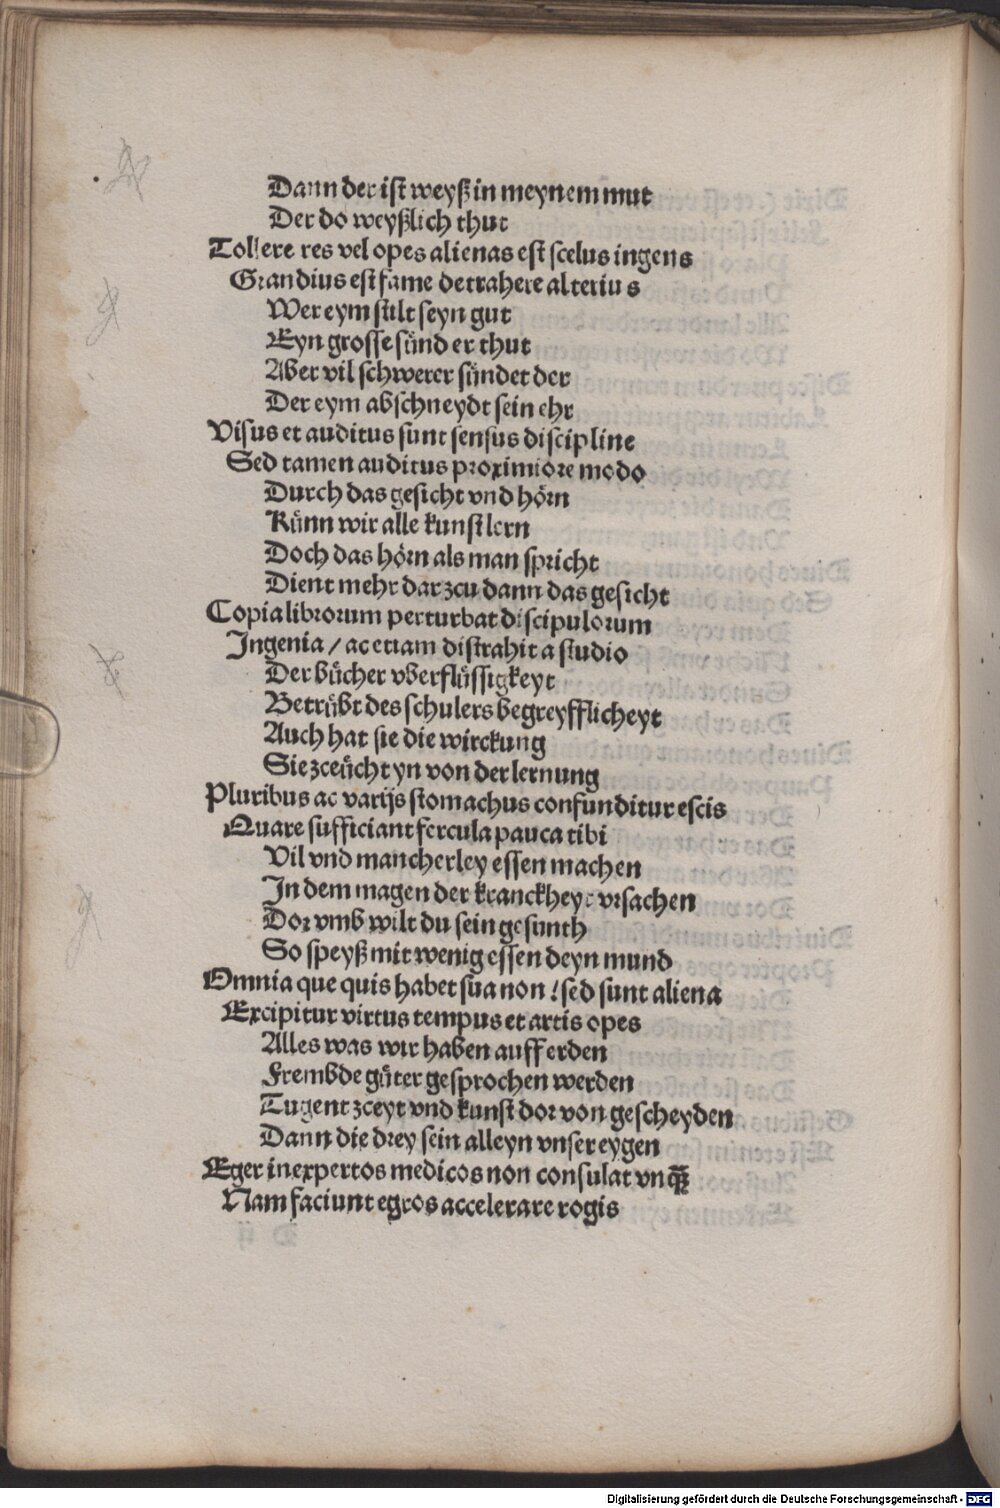 Dann der ist weyß in meynem mut
Der do weyßlich thut
Tollere res vel opes alienas est scelus ingens
Grandius est fame detrahere alterius
Wer eym stilt seyn gut
Eyn grosse sünd er thut
Aber vil schwerer sündet der
Der eym abschneydt sein ehr
Visus et auditus sunt sensus discipline
Sed tamen auditus proximiore modo
Durch das gesicht vnd hörn
Künn wir alle kunst lern
Doch das hörn als man spricht
Dient mehr dar zcu dann das gesicht
Copia librorum perturbat discipulorum
Ingenia / ac etiam distrahit a studio
Der bücher vberflüssigkeyt
Betrübt des schulers begreyfflicheyt
Auch hat sie die wirckung
Sie zceücht yn von der lernung
Pluribus ac varijs stomachus confunditur escis
Quare sufficiant fercula pauca tibi
Vil vnd mancherley essen machen
In dem magen der kranckheyt vrsachen
Dor vmb wilt du sein gesunth
So speyß mit wenig essen deyn mund
Omnia que quis habet sua non / sed sunt aliena
Excipitur virtus tempus et artis opes
Alles was wir haben auff erden
Frembde güter gesprochen werden
Tugent zceyt vnd kunst dor von gescheyden
Dann die drey sein alleyn vnser eygen
Eger inexpertos medicos non consulat vnq̄ꝫ
Nam faciunt egros accelerare rogis
Digitalisierung gefördert durch die Deutsche Forschungsgemeinschaft - DFG